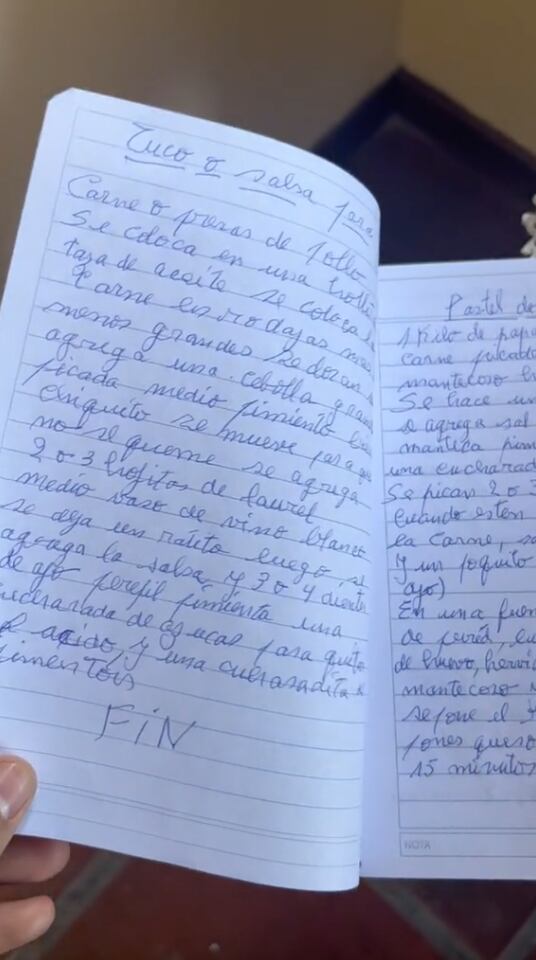 Tuco o salsa para
Carne o presas de pollo
Se coloca en una
taza de aceite se coloca
Carne en rodajas mas
menos grandes se doran
agrega una cebolla grande
picada medio pimiento
chiquito se mueve para que
no se queme se agrega
2 o 3 hojitos de laurel
medio vaso de vino blanco
se deja un ratito luego se
agrega la salsa, y 3 o 4 dientes
de ajo perejil pimienta una
cucharada de azucar para quitar
el acido, y una cucharadita
pimenton
FiN
Pastel de
1 kilo de papa
carne picada
mantecoso
Se hace un
se agrega sal
manteca pim
una cucharad
Se pican 2 o 3
cuando esten
la carne, sa
y un poquito
ajo)
En una fuen
de puré,
de huevo, hervi
mantecoso
se pone el
pones queso
15 minutos
NOTA